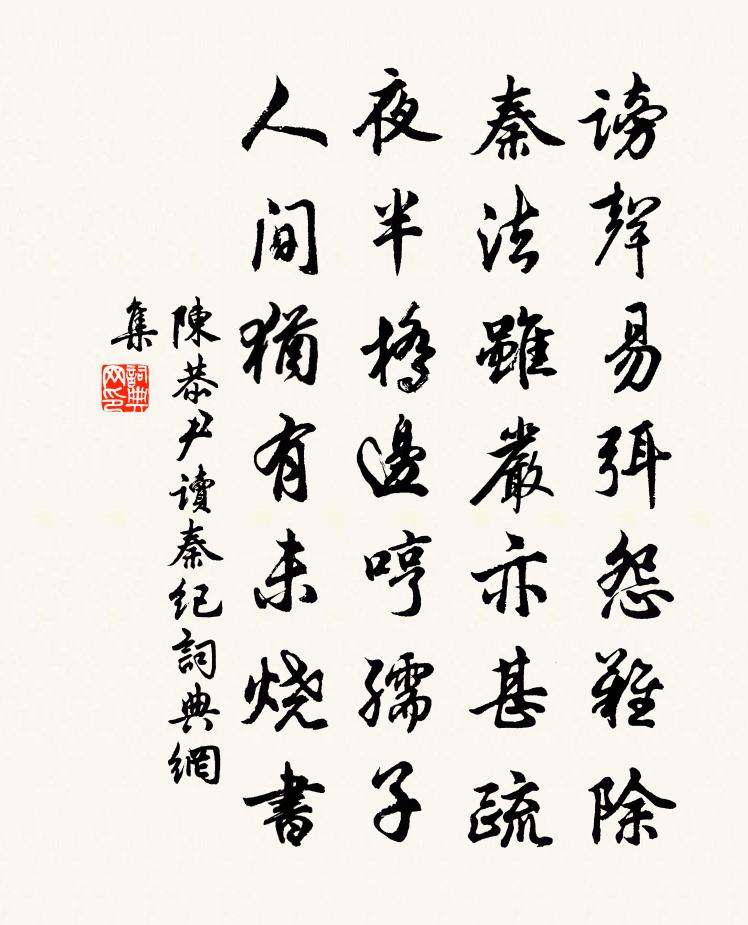 謗聲易弭怨難除
秦法雖嚴亦甚疏
夜半橋邊哼孺子
人間猶有未燒書
陳恭尹讀秦紀詞典網
集
詞典
网印